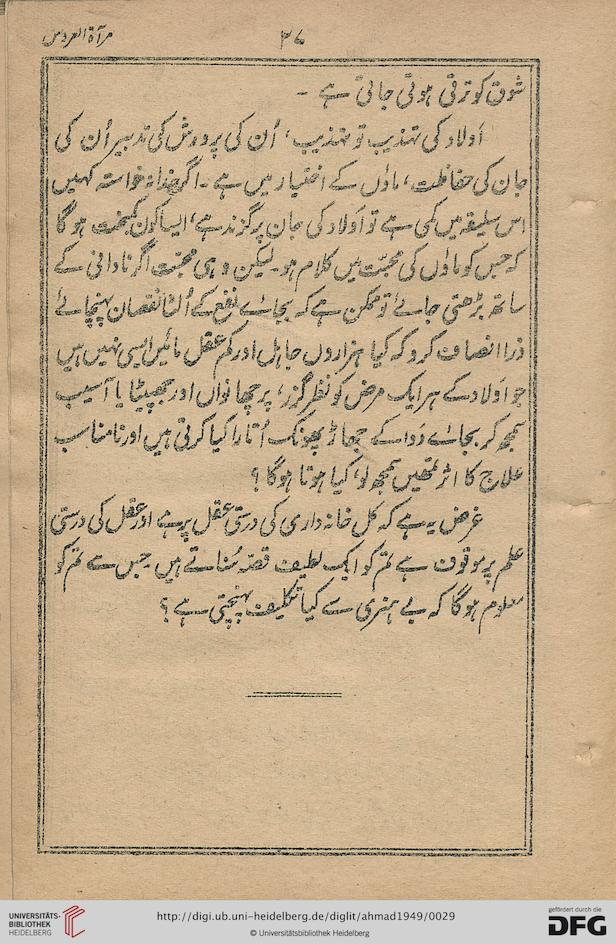 مرآۃ العروس
۳۷
شوق کو ترقی ہوتی جاتی ہے -
اَولاد کی تہذیب تو تہذیب، اُن کی پرورش کی تدبیر اُن کی
جان کی حفاظت، ماؤں کے اختیار میں ہے - اگر خدا نہ خواستہ کہیں
اس سلیقہ میں کمی ہے تو اَولاد کی جان پر گزند ہے، ایسا کون کمبخت ہوگا
کہ جس کو ماؤں کی محبّت میں کلام ہو - لیکن وہی محبّت اگر نادانی کے
ساتھ برتی جائے تو ممکن ہے کہ بجائے نفع کے اُلٹا نقصان پہنچائے
ذرا انصاف کرو کہ کیا ہزاروں جاہل اور کم عقل مائیں ایسی نہیں ہیں
جو اَولاد کے ہر ایک مرض کو نظر گزر، پرچھانواں اور جھپیٹا یا آسیب
سمجھ کر بجائے دَوا کے جھاڑ پھونک اُتارا کیا کرتی ہیں اور نامناسب
علاج کا اثر تمھیں سمجھ لو، کیا ہوتا ہوگا ؟
غرض یہ ہے کہ کل خانہ داری کی درستی عقل پر ہے، اور عقل کی درستی
علم پر موقوف ہے تم کو ایک لطیف قصّہ سُناتے ہیں جس سے تم کو
معلوم ہوگا کہ بے ہنری سے کیا تکلیف پہنچتی ہے ؟
UNIVERSITÄTS-
BIBLIOTHEK
HEIDELBERG
http://digi.ub.uni-heidelberg.de/diglit/ahmad1949/0029
© Universitätsbibliothek Heidelberg
gefördert durch die
DFG